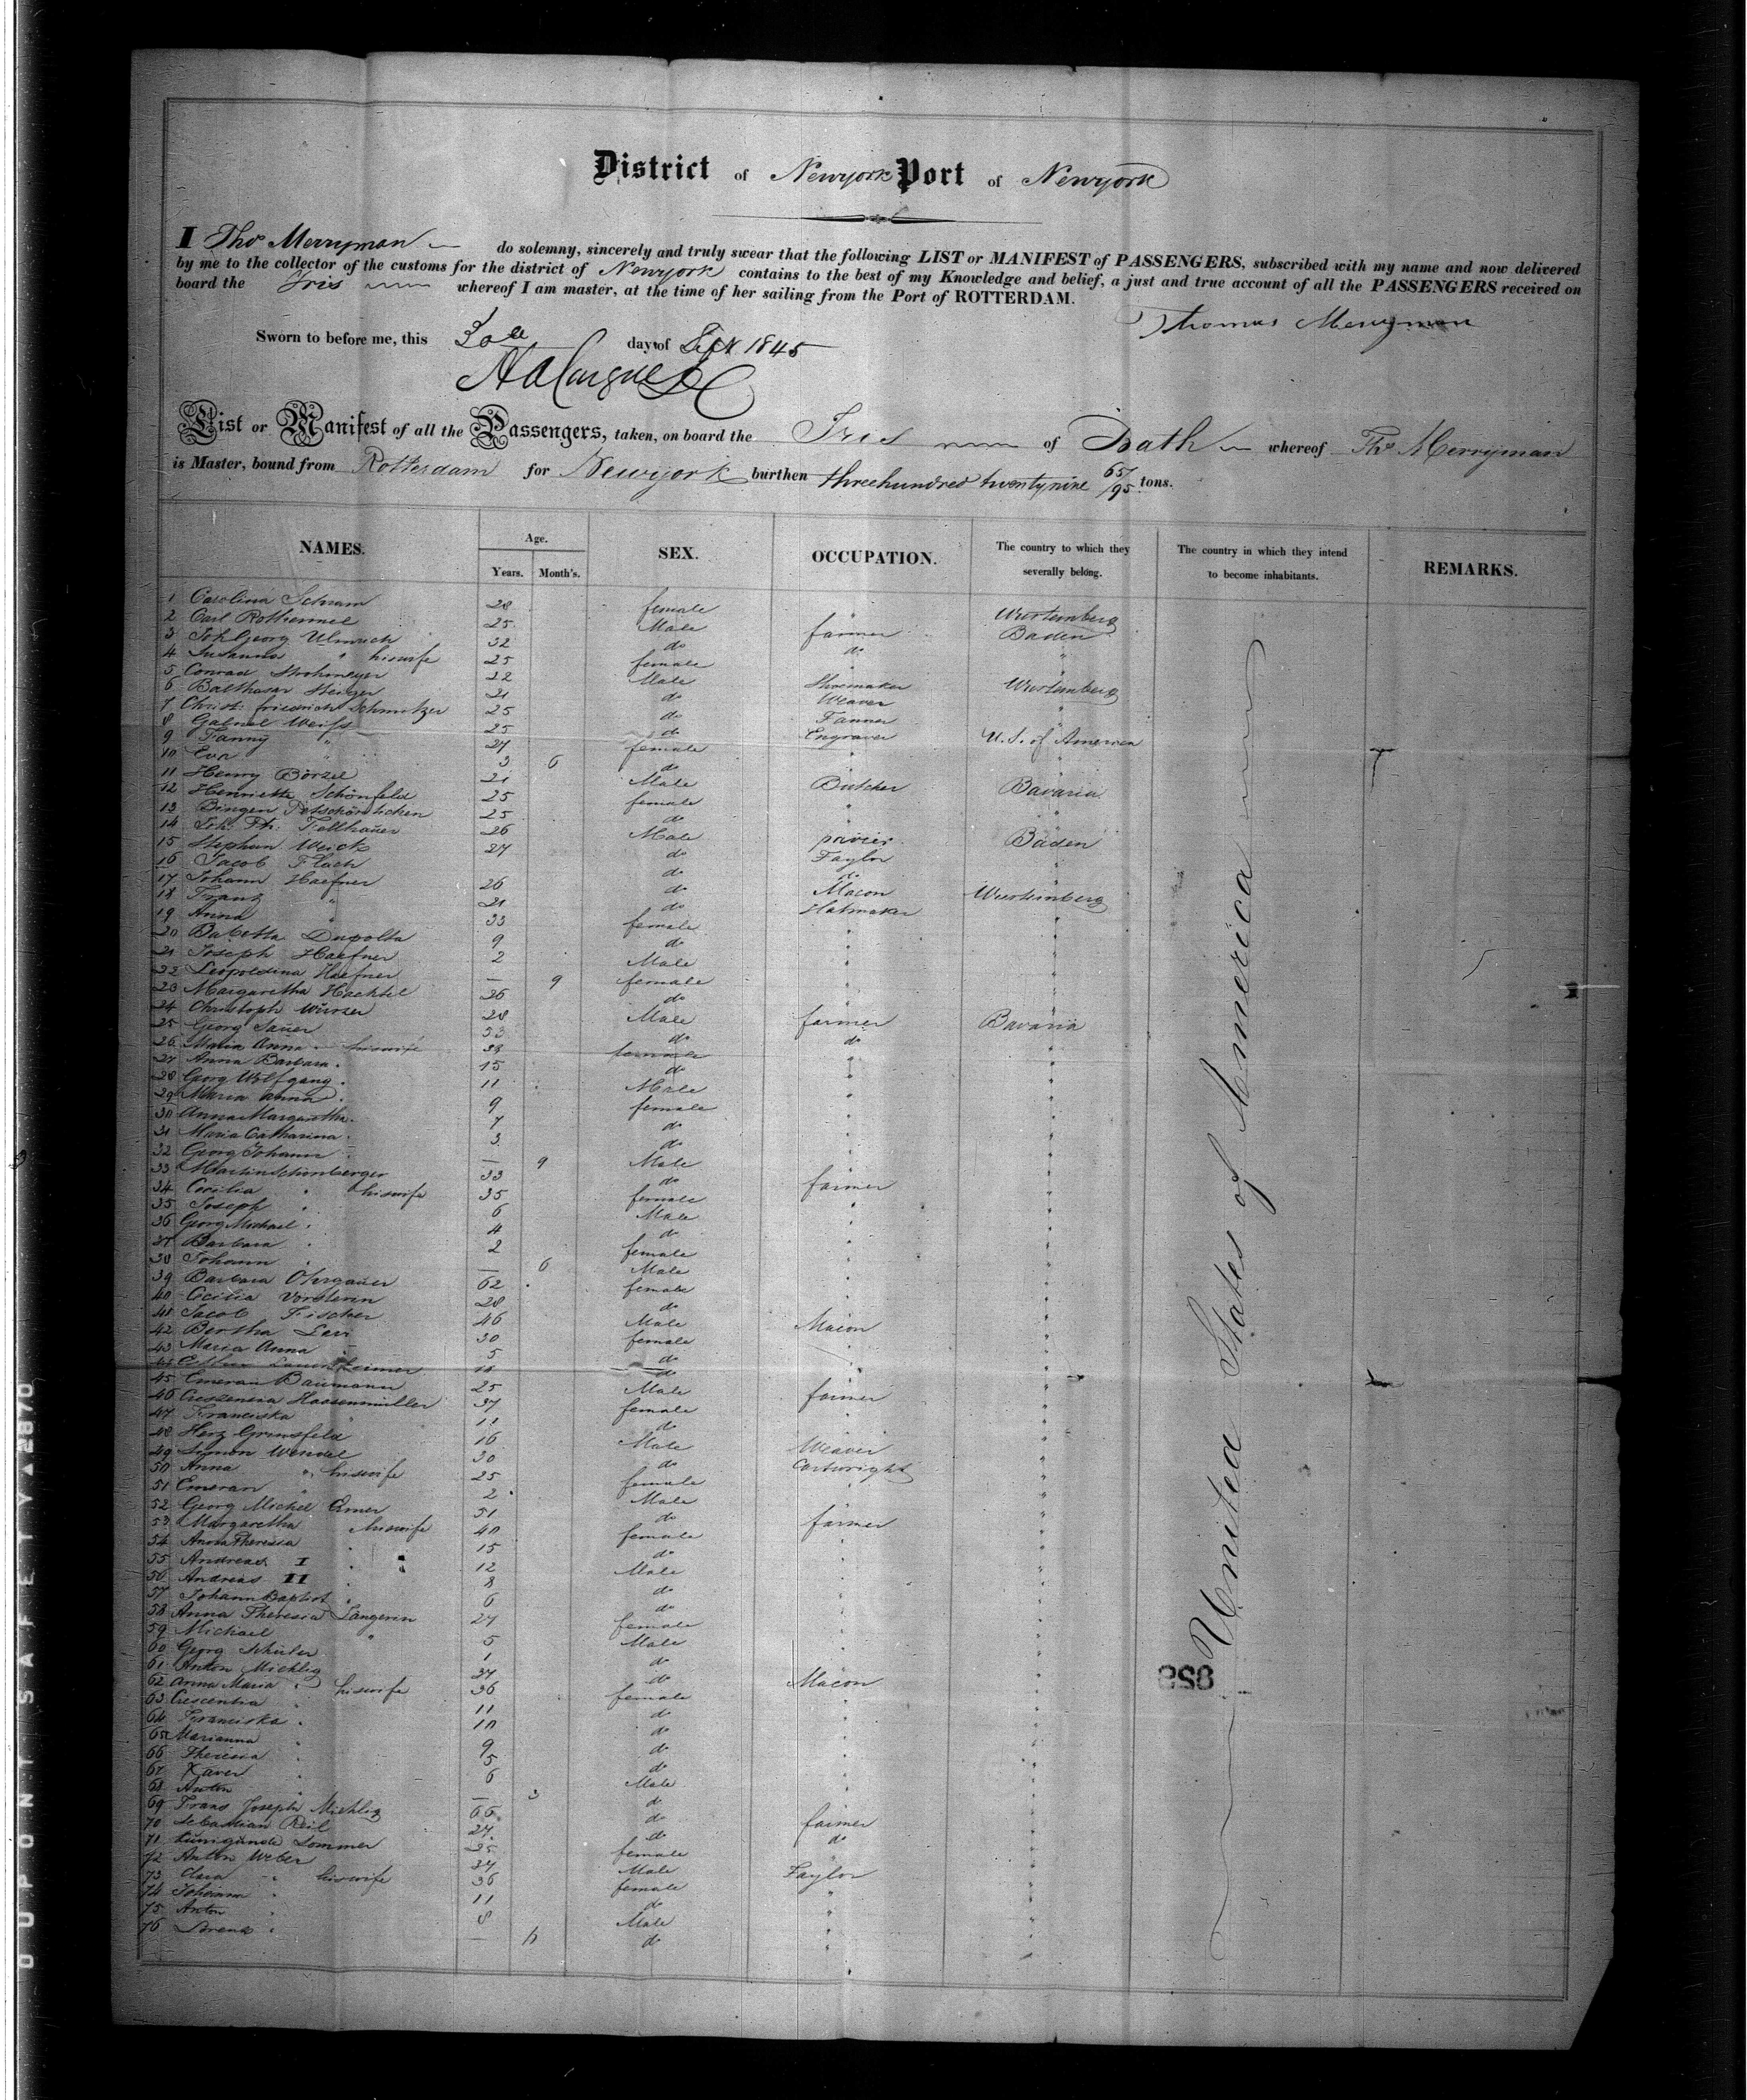 District of Newyork Port of Newyork
I Thos Merryman do solemny, sincerely and truly swear that the following LIST or MANIFEST of PASSENGERS, subscribed with my name and now delivered
by me to the collector of the customs for the district of Newyork contains to the best of my Knowledge and belief, a just and true account of all the PASSENGERS received on
board the Iris whereof I am master, at the time of her sailing from the Port of ROTTERDAM.
Thomas Merryman
Sworn to before me, this 30th day of Sept 1845
List or Manifest of all the Passengers, taken, on board the Iris of Bath whereof Ths Merryman
is Master, bound from Rotterdam for Newyork burthen threehundred twentynine 65/95 tons.
NAMES. Age. SEX. OCCUPATION. The country to which they severally belong. The country in which they intend to become inhabitants. REMARKS.
Years. Month's.
1 Carolina Schram 28 female " Wurtemberg
2 Carl Rothermel 25 Male farmer Baden
3 Joh Georg Ulmrich 32 do do "
4 Susanna " hiswife 25 female " "
5 Conrad Strohmeyer 22 Male Shoemaker Wurtemberg
6 Balthasar Stenger 21 do Weaver "
7 Christ: friedrich Schmitzer 25 do Tanner "
8 Gabriel Weifs 25 do Engraver U.S. of America
9 Fanny " 27 female " "
10 Eva " 3 6 do " "
11 Henry Börzel 21 Male Butcher Bavaria
12 Henriette Schönfeld 25 female " "
13 Bingen 25 do " "
14 Joh: Ph: Fellhauer 26 Male Baden
15 Stephan Weick 27 do Taylor "
16 Jacob Flach do do "
17 Johann Haefner 26 do Macon Wurtemberg
18 Franz " 21 do Hatmaker "
19 Anna " 33 female " "
20 Babetta Dupolta 9 do " "
21 Joseph Haefner 2 Male " "
22 Leopoldina Haefner — 9 female " "
23 Margaretha Hachtel 26 do " "
24 Christoph Würzer 28 Male farmer Bavaria
25 Georg Sauer 53 do do "
26 Maria Anna " hiswife 38 female " "
27 Anna Barbara " 15 do " "
28 Georg Wolfgang " 11 Male " "
29 Maria Anna " 9 female " "
30 Anna Margaretha " 7 do " "
31 Maria Catharina " 3 do " "
32 Georg Johann " — 9 Male " "
33 Martin Schönberger 33 do farmer "
34 Cecilia " hiswife 35 female " "
35 Joseph " 6 Male " "
36 Georg Michael " 4 do " "
37 Barbara " 2 female " "
38 Johann " — 6 Male " "
39 Barbara Ohrgauer 62 female " "
40 Cicilia Vorsterin 28 do " "
41 Jacob Fischer 46 Male Macon "
42 Bertha Levi 30 female " "
43 Maria Anna 5 do " "
44 do " "
45 Emeran Baumann 25 Male farmer "
46 Creszensia Haasenmüller 37 female " "
47 Franciska " 11 do " "
48 Herz Grunsfeld 16 Male Weaver "
49 Simon Wendel 30 do Cartwright "
50 Anna " hiswife 25 female " "
51 Emeran " 2 Male " "
52 Georg Michel 51 do farmer "
53 Margaretha hiswife 40 female " "
54 Anna Theresia " 15 do " "
55 Andreas I " 12 Male " "
56 Andreas II " 8 do " "
57 Johann Baptist " 6 do " "
58 Anna Theresia Langerin 27 female " "
59 Michael " 5 Male " "
60 Georg Schuler 1 do " "
61 Anton Michlig 37 do Macon "
62 Anna Maria " hiswife 36 female " "
63 Crescentia " 11 do " "
64 Franciska " 10 do " "
65 Marianna " 9 do " "
66 Theresia " 5 do " "
67 Xaver " 6 Male " "
68 Anton " — 3 do " "
69 Frans Joseph Michlig 66 do farmer "
70 Sebastian Reil 27 do do "
71 Kunigunde Sommer 35 female " "
72 Anton Weber 34 Male Taylor "
73 Clara " hiswife 36 female " "
74 Johann " 11 do " "
75 Anton " 8 Male " "
76 — do " "
United States of America
858